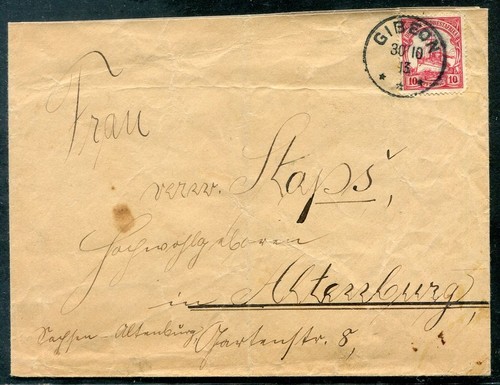 GIBEON
30 10
13
10 10
Frau
verw. Stapš,
Hochwohlgeboren
in Altenburg,
Sachsen-Altenburg Gartenstr. 8,